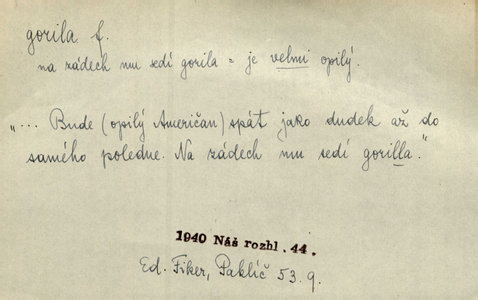 gorila f.
na zádech mu sedí gorila = je velmi opilý.
"... Bude (opilý Američan) spát jako dudek až do
samého poledne. Na zádech mu sedí gorilla."
1940 Náš rozhl. 44.
Ed. Fiker, Paklíč 53.9.